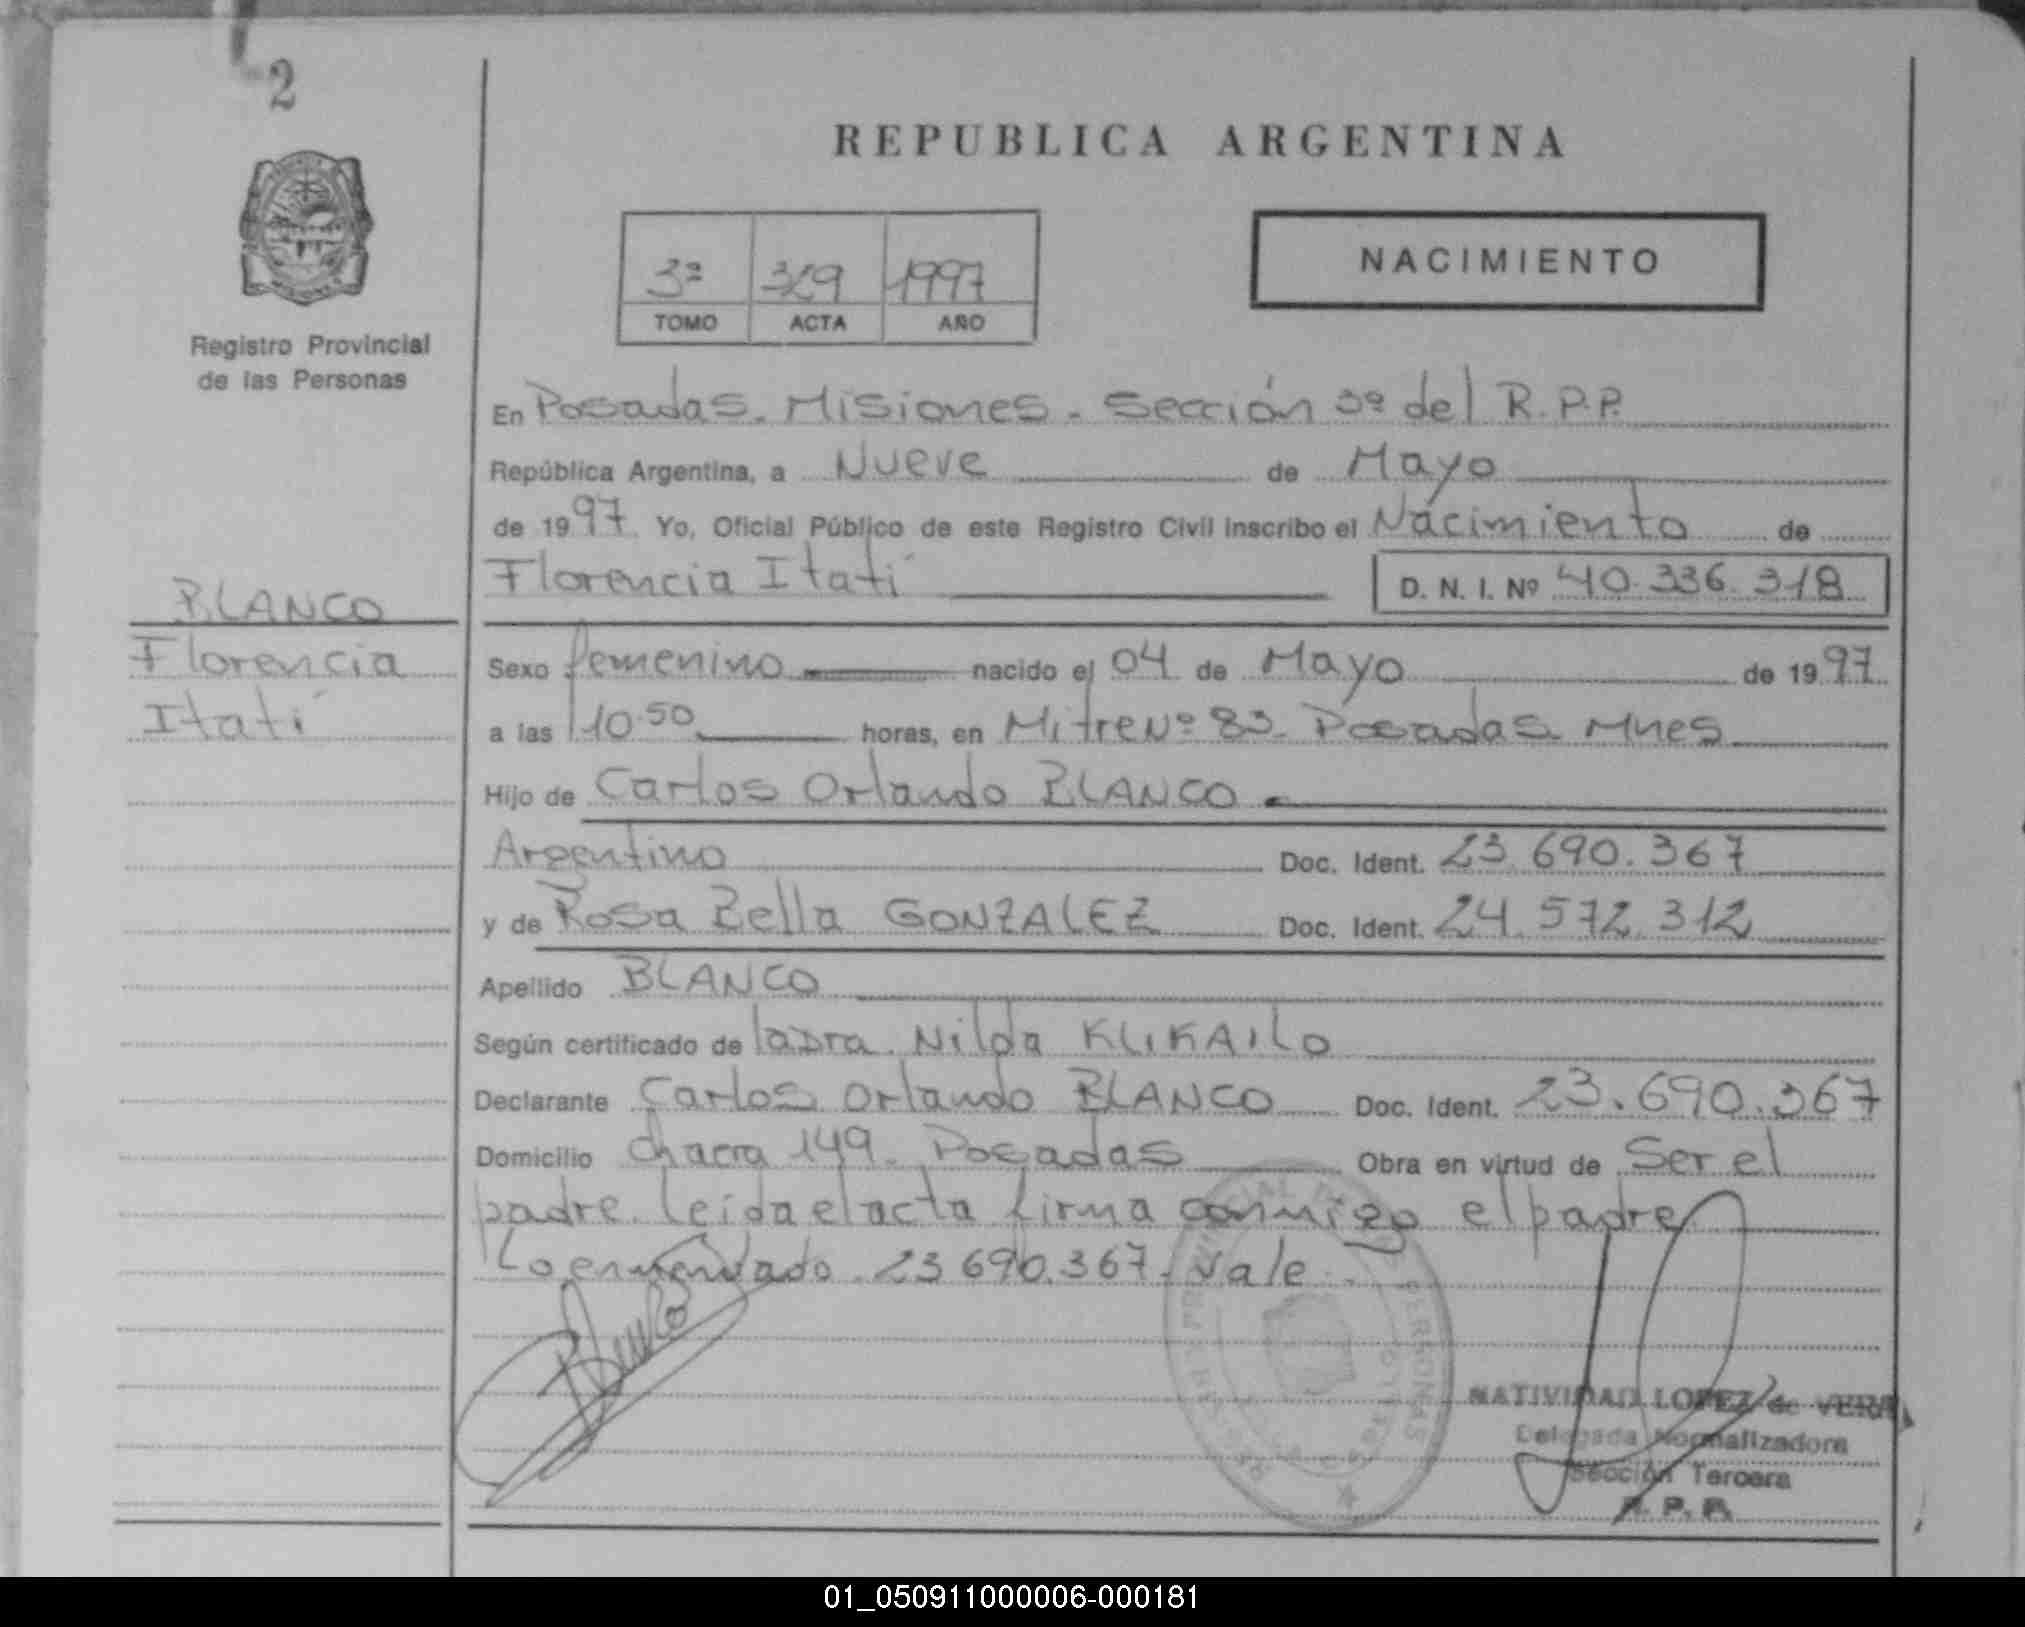 2
REPUBLICA ARGENTINA
NACIMIENTO
3ª 329 1997
TOMO ACTA AÑO
Registro Provincial
de las Personas
En Posadas. Misiones. Sección 3ª del R.P.P.
República Argentina, a Nueve de Mayo
de 1997 Yo, Oficial Público de este Registro Civil inscribo el Nacimiento de
Florencia Itatí D. N. I. Nº 40.336.318
BLANCO
Florencia
Itatí
Sexo femenino nacido el 04 de Mayo de 1997
a las 10.50 horas, en Mitre Nº 83. Posadas Mnes
Hijo de Carlos Orlando BLANCO
Argentino Doc. Ident. 23.690.367
y de Rosa Bella GONZALEZ Doc. Ident. 24.572.312
Apellido BLANCO
Según certificado de la Dra. Nilda KLIKAILO
Declarante Carlos Orlando BLANCO Doc. Ident. 23.690.367
Domicilio chacra 149. Posadas Obra en virtud de Ser el
padre. Leída el acta firma conmigo el padre
Lo enmendado. 23 690.367. Vale.
Blanco
NATIVIDAD LOPEZ de VERA
Delegada Normalizadora
Sección Tercera
R. P. P.
01_050911000006-000181